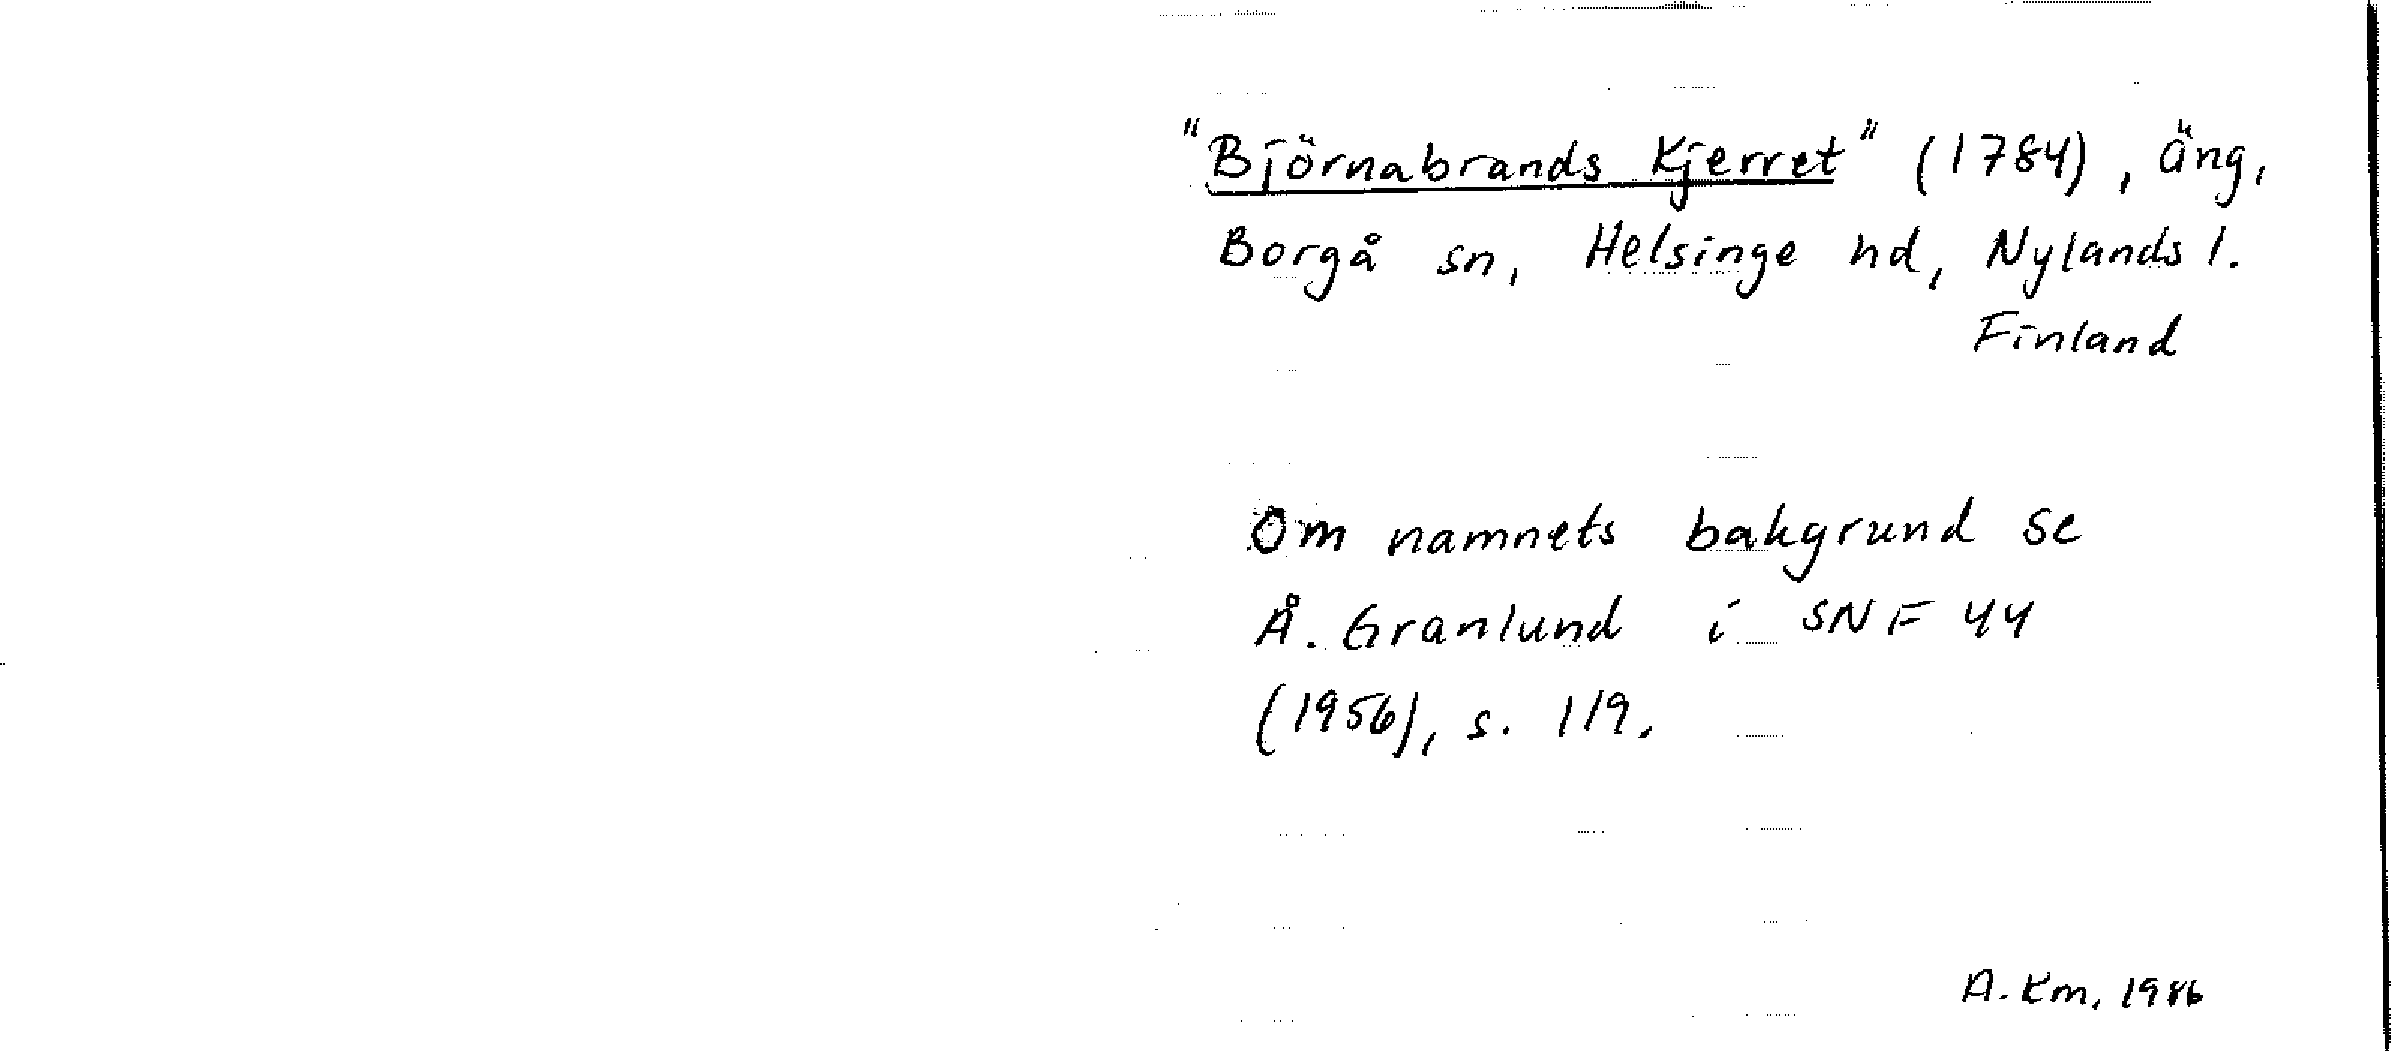 "Björnabrands Kjerret" (1784), äng,
Borgå sn, Helsinge hd, Nylands l.
Finland
Om namnets bakgrund se
Å. Granlund i SNF 44
(1956), s. 119.
A. Km, 1986